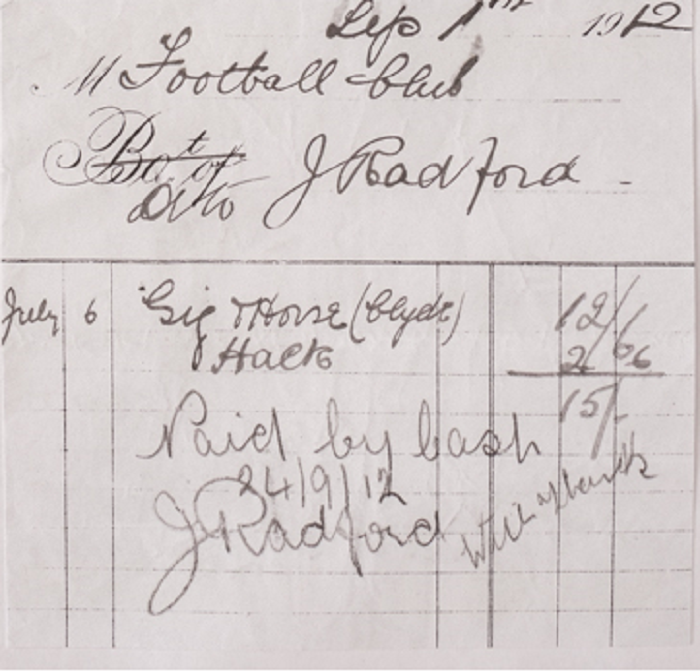 Sep 1st 1912
M Football Club
Bot of
Dr to J Radford
July 6 Gig & Horse (Clyde) 12/6
Hack 2/6
15/-
Paid by Cash
24/9/12
J Radford With thanks